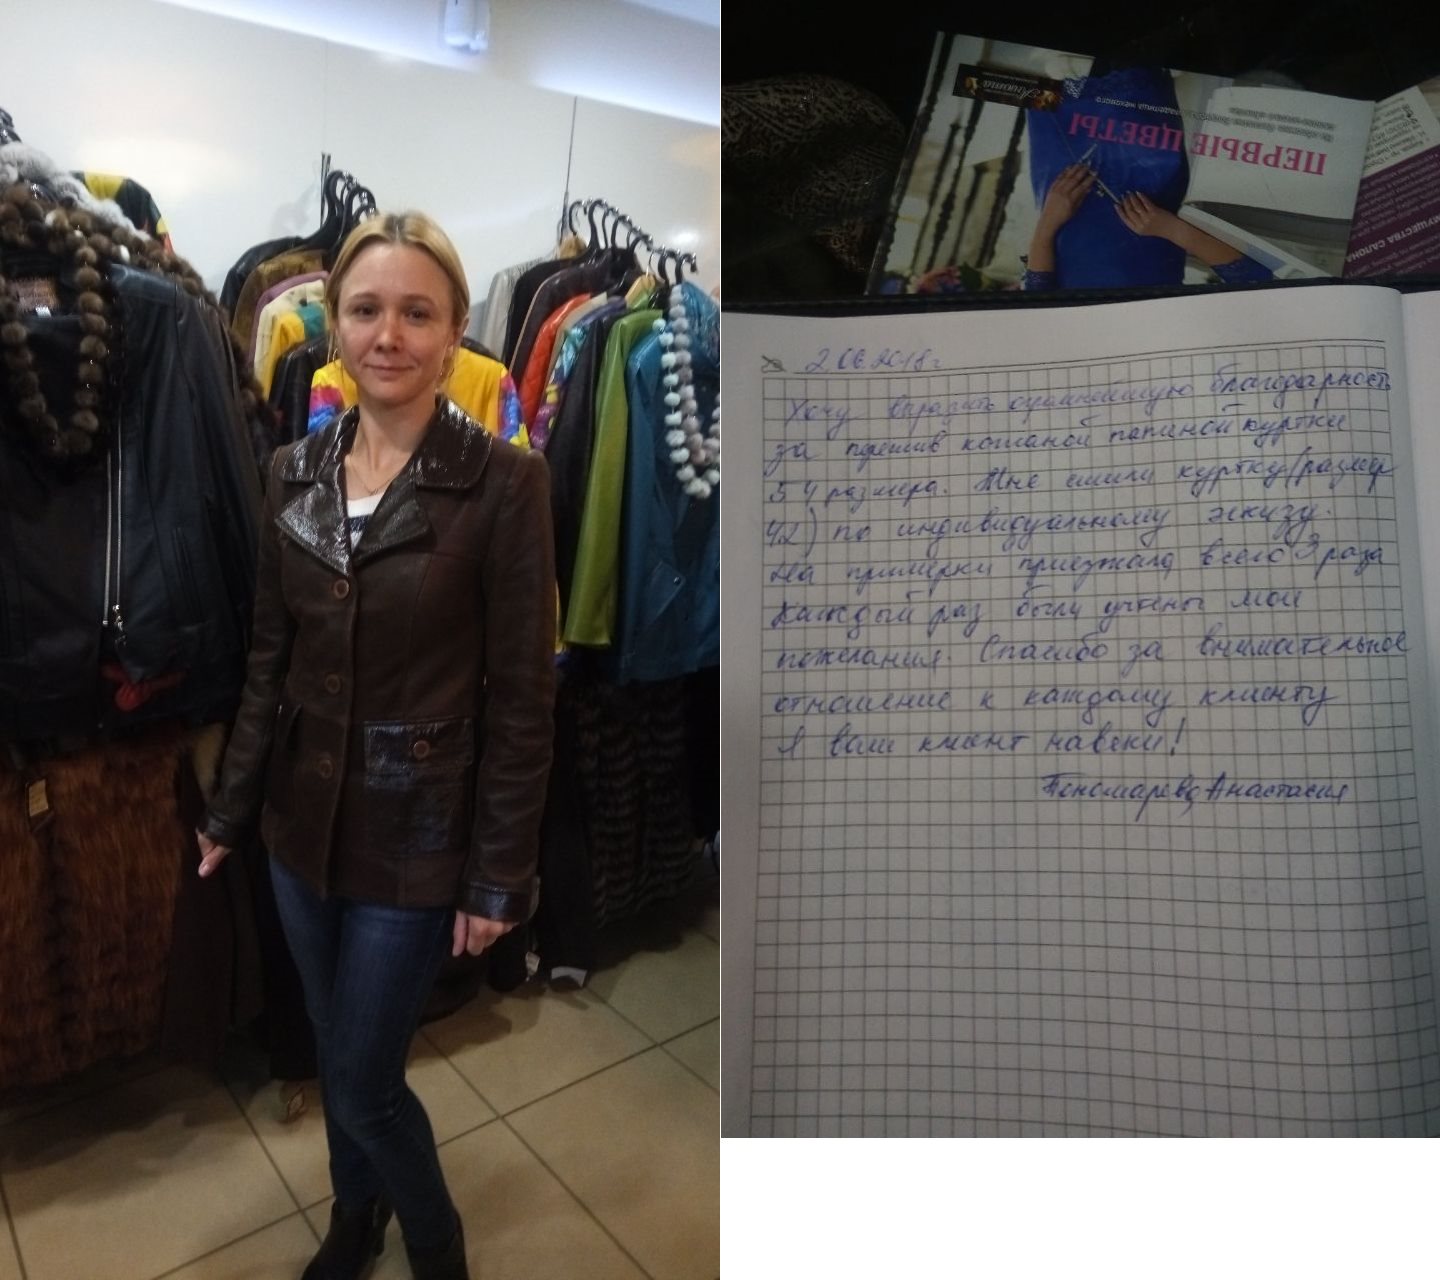 ПЕРВЫЕ ЦВЕТЫ
2.06.2018г
Хочу выразить огромнейшую благодарность
за перешив кожаной папиной куртки
54 размера. Мне сшили куртку (размер
42) по индивидуальному эскизу.
На примерки приезжала всего 3 раза
Каждый раз были учтены мои
пожелания. Спасибо за внимательное
отношение к каждому клиенту
Я ваш клиент навеки!
Пономарева Анастасия